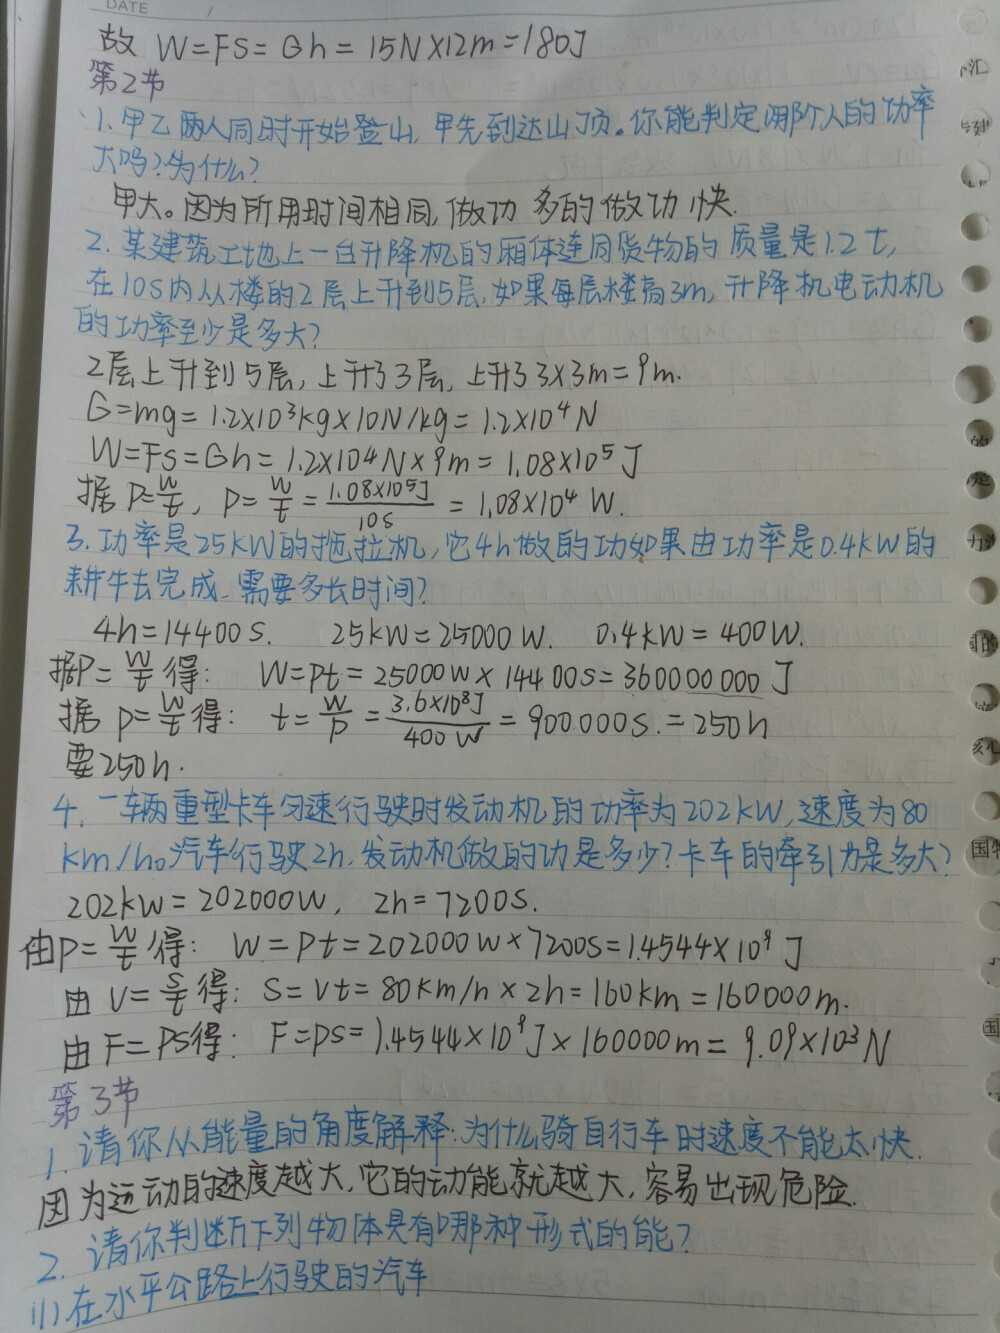 DATE
故 W=FS=Gh=15N×12m=180J
第2节
1.甲乙两人同时开始登山,甲先到达山顶。你能判定哪个人的功率
大吗?为什么?
甲大。因为所用时间相同,做功多的做功快.
2.某建筑工地上一台升降机的厢体连同货物的质量是1.2t,
在10s内从楼的2层上升到5层,如果每层楼高3m,升降机电动机
的功率至少是多大?
2层上升到5层,上升了3层,上升了3×3m=9m.
G=mg=1.2×10³kg×10N/kg=1.2×10⁴N
W=Fs=Gh=1.2×104N×9m=1.08×10⁵J
据P=W/t, P=W/t=1.08×10⁵J/10s=1.08×10⁴W.
3.功率是25kW的拖拉机,它4h做的功如果由功率是0.4kW的
耕牛去完成,需要多长时间?
4h=14400s. 25kW=25000W. 0.4kW=400W.
据P=W/t得: W=Pt=25000W×14400s=360000000J
据P=W/t得: t=W/P=3.6×10⁸J/400W=900000s.=250h
要250h.
4.一辆重型卡车匀速行驶时发动机的功率为202kW,速度为80
km/h。汽车行驶2h,发动机做的功是多少?卡车的牵引力是多大?
202kW=202000W, 2h=7200s.
由P=W/t得: W=Pt=202000W×7200s=1.4544×10⁹J
由V=S/t得: S=Vt=80km/h×2h=160km=160000m.
由F=PS得: F=PS=1.4544×10⁹J×160000m=9.09×10³N
第3节
1.请你从能量的角度解释:为什么骑自行车时速度不能太快.
因为运动的速度越大,它的动能就越大,容易出现危险.
2.请你判断下列物体具有哪种形式的能?
(1)在水平公路上行驶的汽车